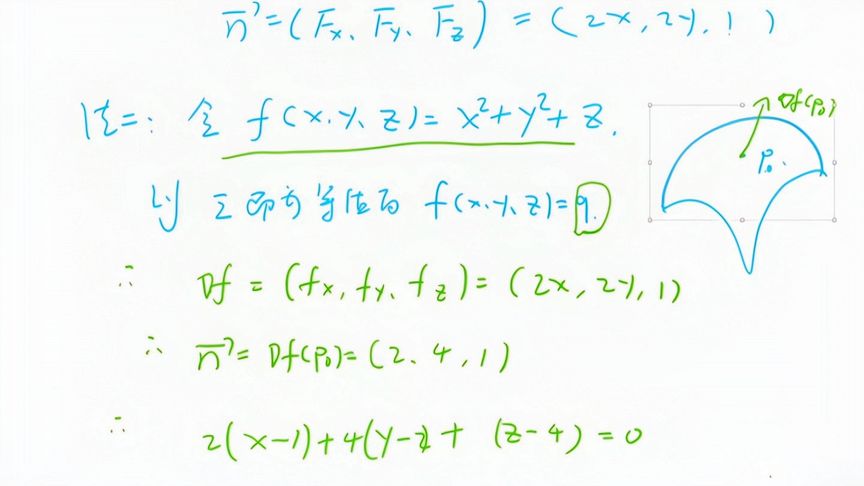 n⃗=(Fx、Fy、Fz)=(2x,2y,1)
法二:令 f(x、y、z)=x²+y²+z.
∇f(P₀)
P₀.
则 Σ即为等值面 f(x、y、z)=9.
∴ ∇f=(fx,fy、fz)=(2x,2y,1)
∴ n⃗=∇f(P₀)=(2、4,1)
∴ 2(x-1)+4(y-2)+(z-4)=0